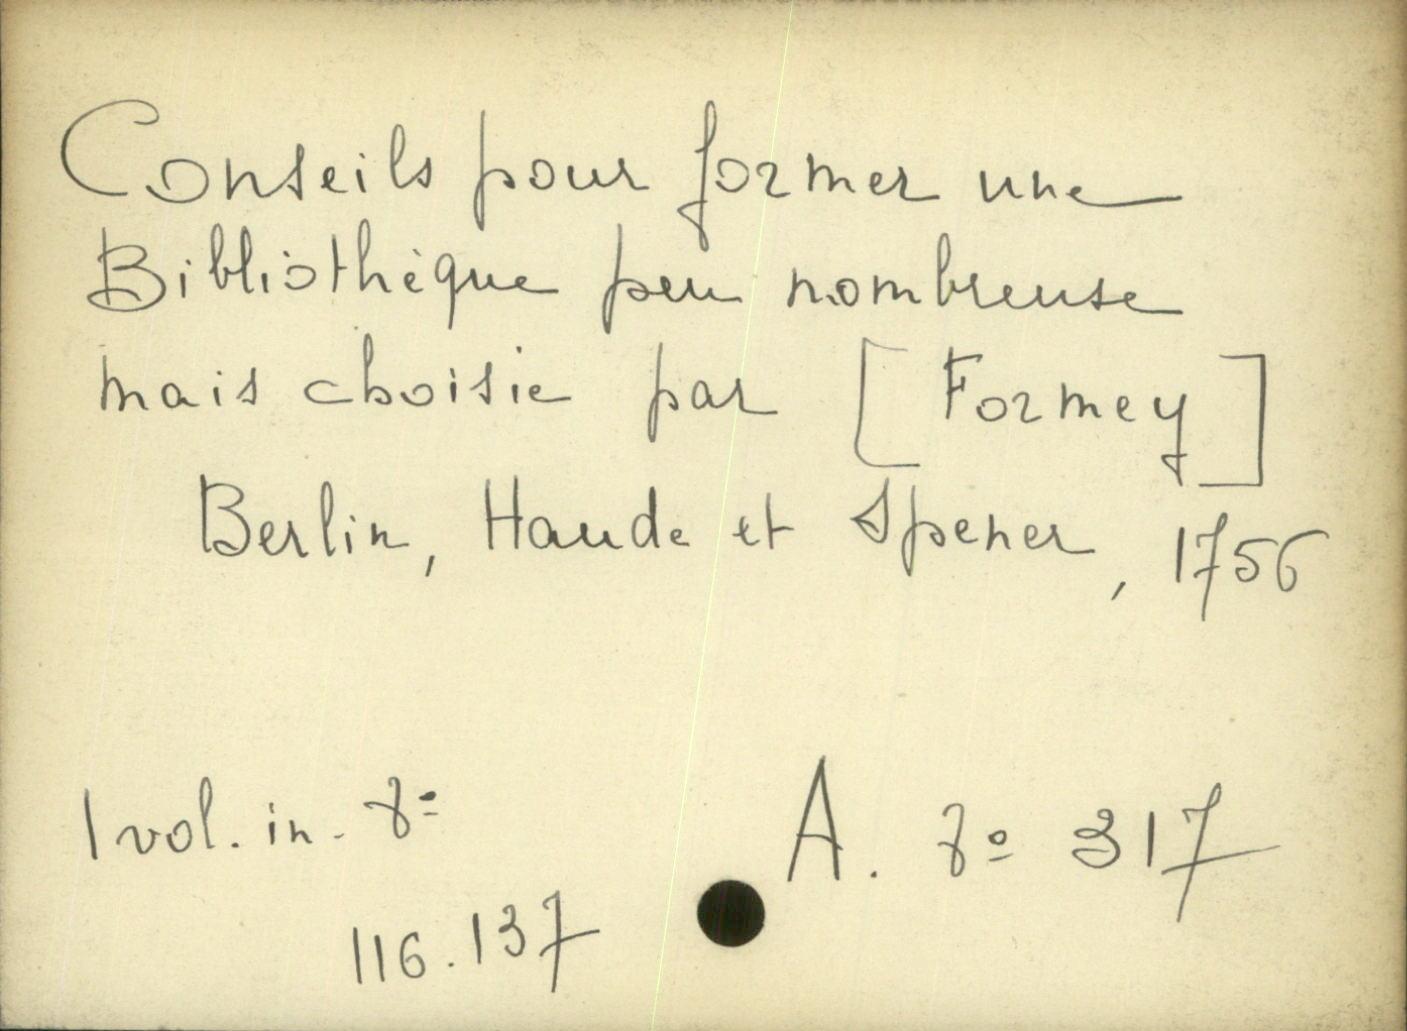 Conseils pour former une
Bibliothèque peu nombreuse
mais choisie par [Formey]
Berlin, Haude et Spener, 1756
1 vol. in-8º
A. 8º 317
116.137